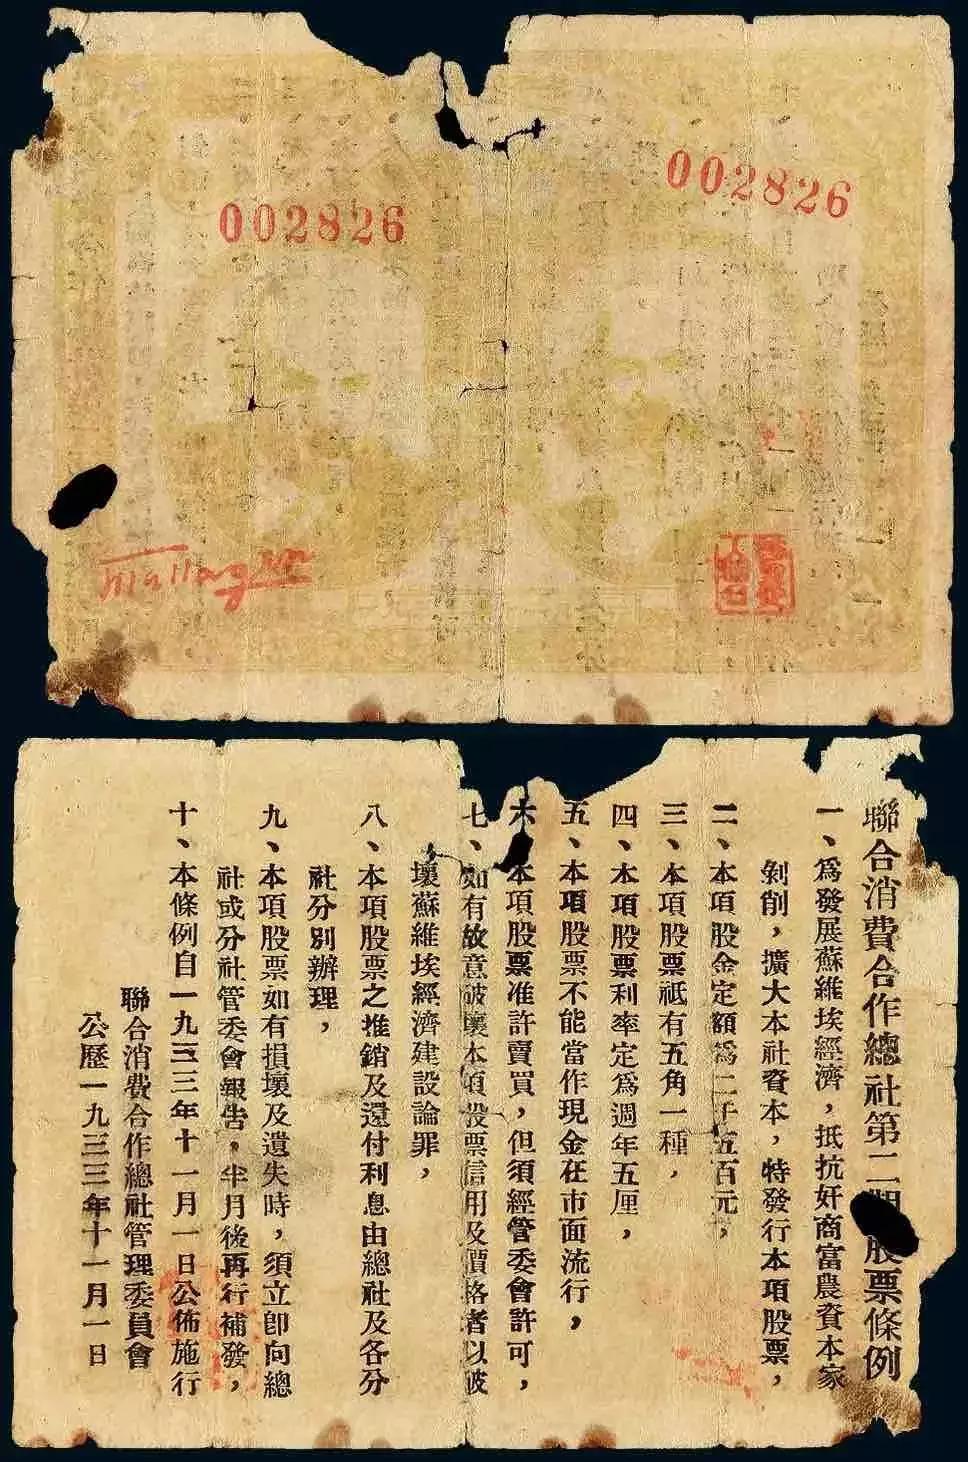 002826
002826
聯合消費合作總社第二期股票條例
一、爲發展蘇維埃經濟，抵抗奸商富農資本家
剝削，擴大本社資本，特發行本項股票，
二、本項股金定額爲二千五百元，
三、本項股票祇有五角一種，
四、本項股票利率定爲週年五厘，
五、本項股票不能當作現金在市面流行，
六、本項股票准許賣買，但須經管委會許可，
七、如有故意破壞本項股票信用及價格者以破
壞蘇維埃經濟建設論罪，
八、本項股票之推銷及還付利息由總社及各分
社分別辦理，
九、本項股票如有損壞及遺失時，須立卽向總
社或分社管委會報告，半月後再行補發，
十、本條例自一九三三年十一月一日公佈施行
聯合消費合作總社管理委員會
公歷一九三三年十一月一日